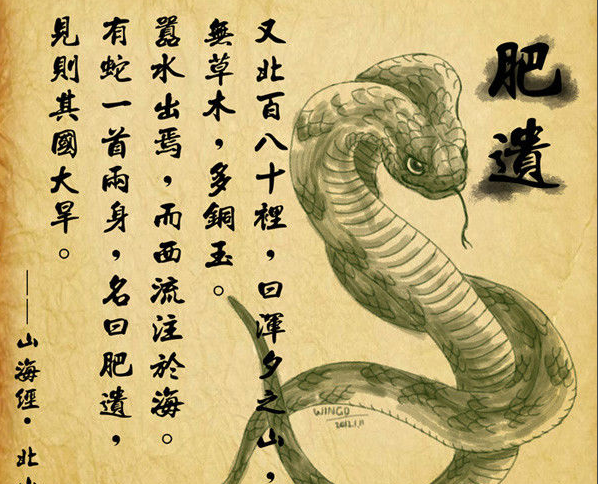 肥遺
又北百八十裡，曰渾夕之山，
無草木，多銅玉。
囂水出焉，而西流注於海。
有蛇一首兩身，名曰肥遺，
見則其國大旱。
——山海經·北山
WINGO
2012.1.11